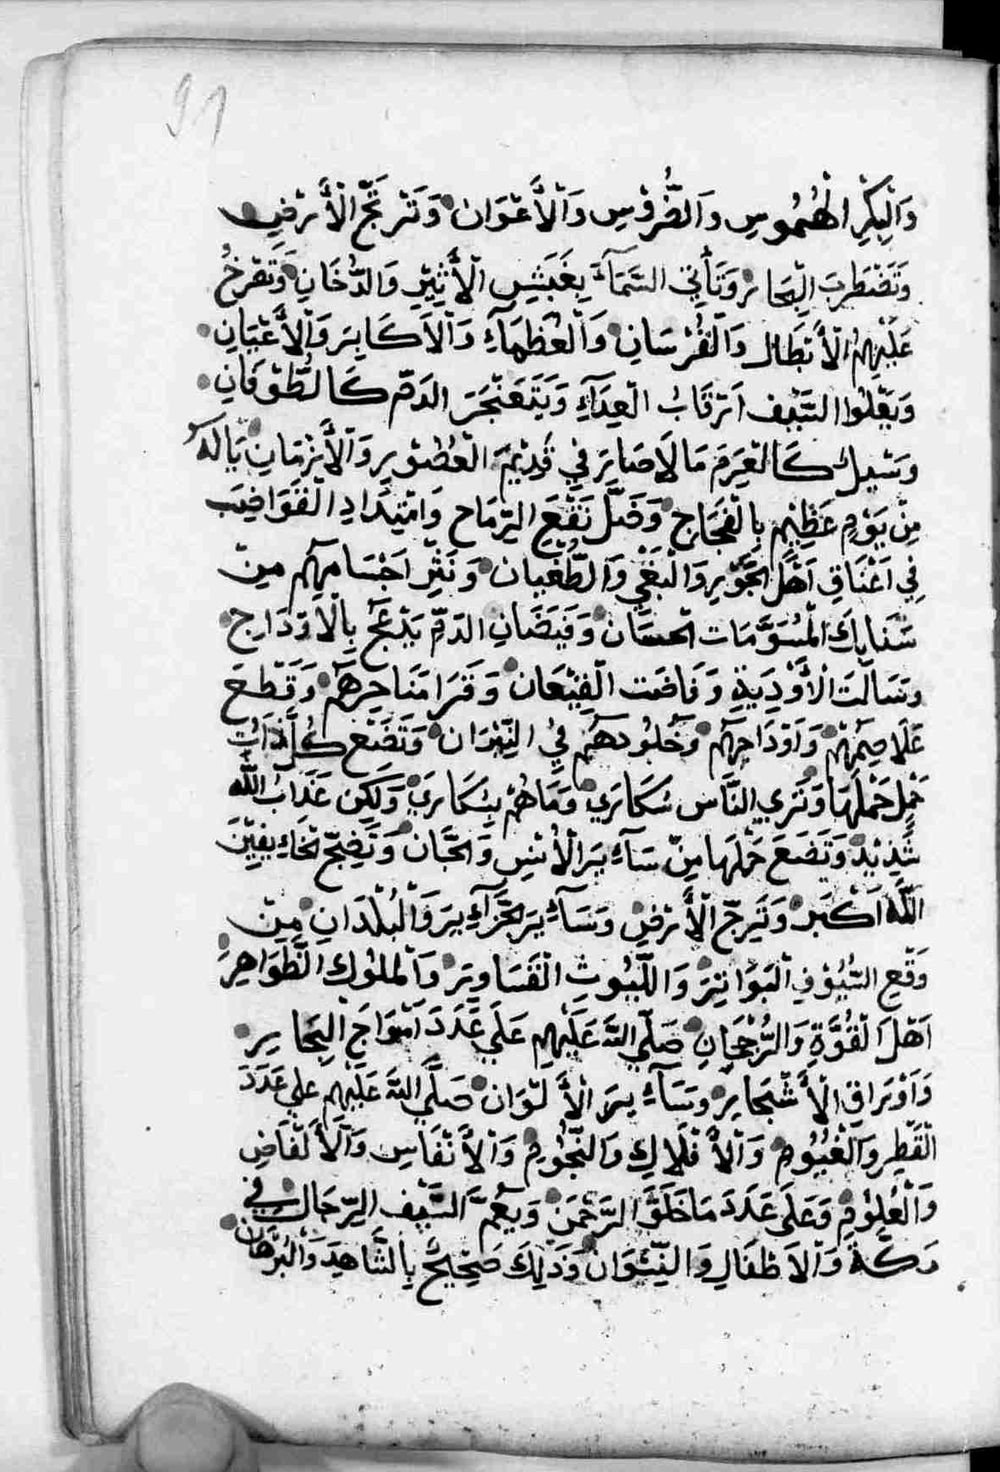 91
وَالْبِكْرِ الْهُمُوسِ وَالضُّرُوسِ وَالْأَعْوَان وَتَرْتَجّ الْأَرْضِ
وَتَضْطَرِبَ الْبِحَار وَتَأْتِي السَّمَآءَ بِغَبَشِ الْأَثِيْرِ وَالدُّخَانِ وَتَفْرَحُ
عَلَيْهِمُ الْأَبْطَال وَالْفُرْسَانِ وَالْعُظَمَآءِ وَالْاَكَابِرَ وَالْأَعْيَانِ
وَيَعْلُوا السَّيْف اَرْقَابُ الْعِدَآءِ وَيَتَعَنْجَرَ الدَمّ كَالطُّوْفَانِ
وَسَيْل كَالْعَرِم مَا لَا صَارَ فِي قَدِيْمِ الْعُصُوْرِ وَالْأَزْمَانِ يَا لَهُ
مِنْ يَوْمٍ عَظِيْم بِالْفَجَاج وَفَصْل نَقْعِ الرِّمَاح وَامْتِدَادِ الْقَوَاضِيَب
فِي اَعْنَاقِ اَهْل الْجَوْرِ وَالْبَغْي وَالطُّغْيَان وَنَثْرِ اَجْسَامِهِم مِنْ
سَنَابِكَ الْمُسَوَّمَات الحسَان وَفَيَضَانِ الدَمّ يَدْعَج بِالْأَوْدَاجِ
وَسَالَتَ الْأَوْدِيَةِ وَفَاضَت الْقِيْعَان وَفَرَا مَنَاحِرِهُم وَقَطْع
غَلَاصِمَهُم وَاَوْدَاجِهُم وَخُلُودهُم فِي النِّيْرَان وَتَضَع كُلّ ذَاتُ
حَمْلٍ حَمْلَهَا وَتَرَي النَّاس سُكَارَي وَمَا هُمْ بِسُكَارَي وَلَكِن عَذَابُ اللَّه
شَدِيْدٌ وَتَضَعَ حَمْلَهَا مِنْ سَآءِيَر الْأُنْسِ وَالْجَّان وَتَضِجّ الْخَافِقِيْنَ
اَللَّه اَكْبَر وَتَرِجّ الْأَرْضِ وَسَآءِيَر الْجَزَآءِيرَ وَالْبُلْدَانِ مِنْ
وَقْعِ السُّيُوْفِ الْبَوَاتِرَ وَاللِّيُوثِ الْقَسَاوِرَ وَالْمُلُوْك الظَّوَاهِرُ
اَهْلَ الْقُوَّةِ وَالرُّجْحَانِ صَلَّي اللَّهَ عَلَيْهِم عَلَي عَدَدَ اَمْوَاج الْبِحَارِ
وَاَوْرَاقِ الْأَشْجَارِ وَسَآءِيرَ الْأَلْوَان صَلَّي اللَّهَ عَلَيْهِم علي عَدَدَ
الْقَطْرِ وَالْغُيُوْمِ وَالْأَفْلَاكِ وَالنُّجُوْمِ وَالْأَنْفَاسِ وَالْأَلْفَاضِ
وَالْعُلُوْمِ وَعَلَي عَدَدَ مَا خَلَقَ الرَحْمَن وَيَعُمّ السَّيْف الرِّجَال فِي
مَكَّةَ وَالْاَطْفَالِ وَالنِّسْوَان وَذَلِكَ صَحِيْحٌ بِالشَّاهِدَ وَالْبُرْهَان